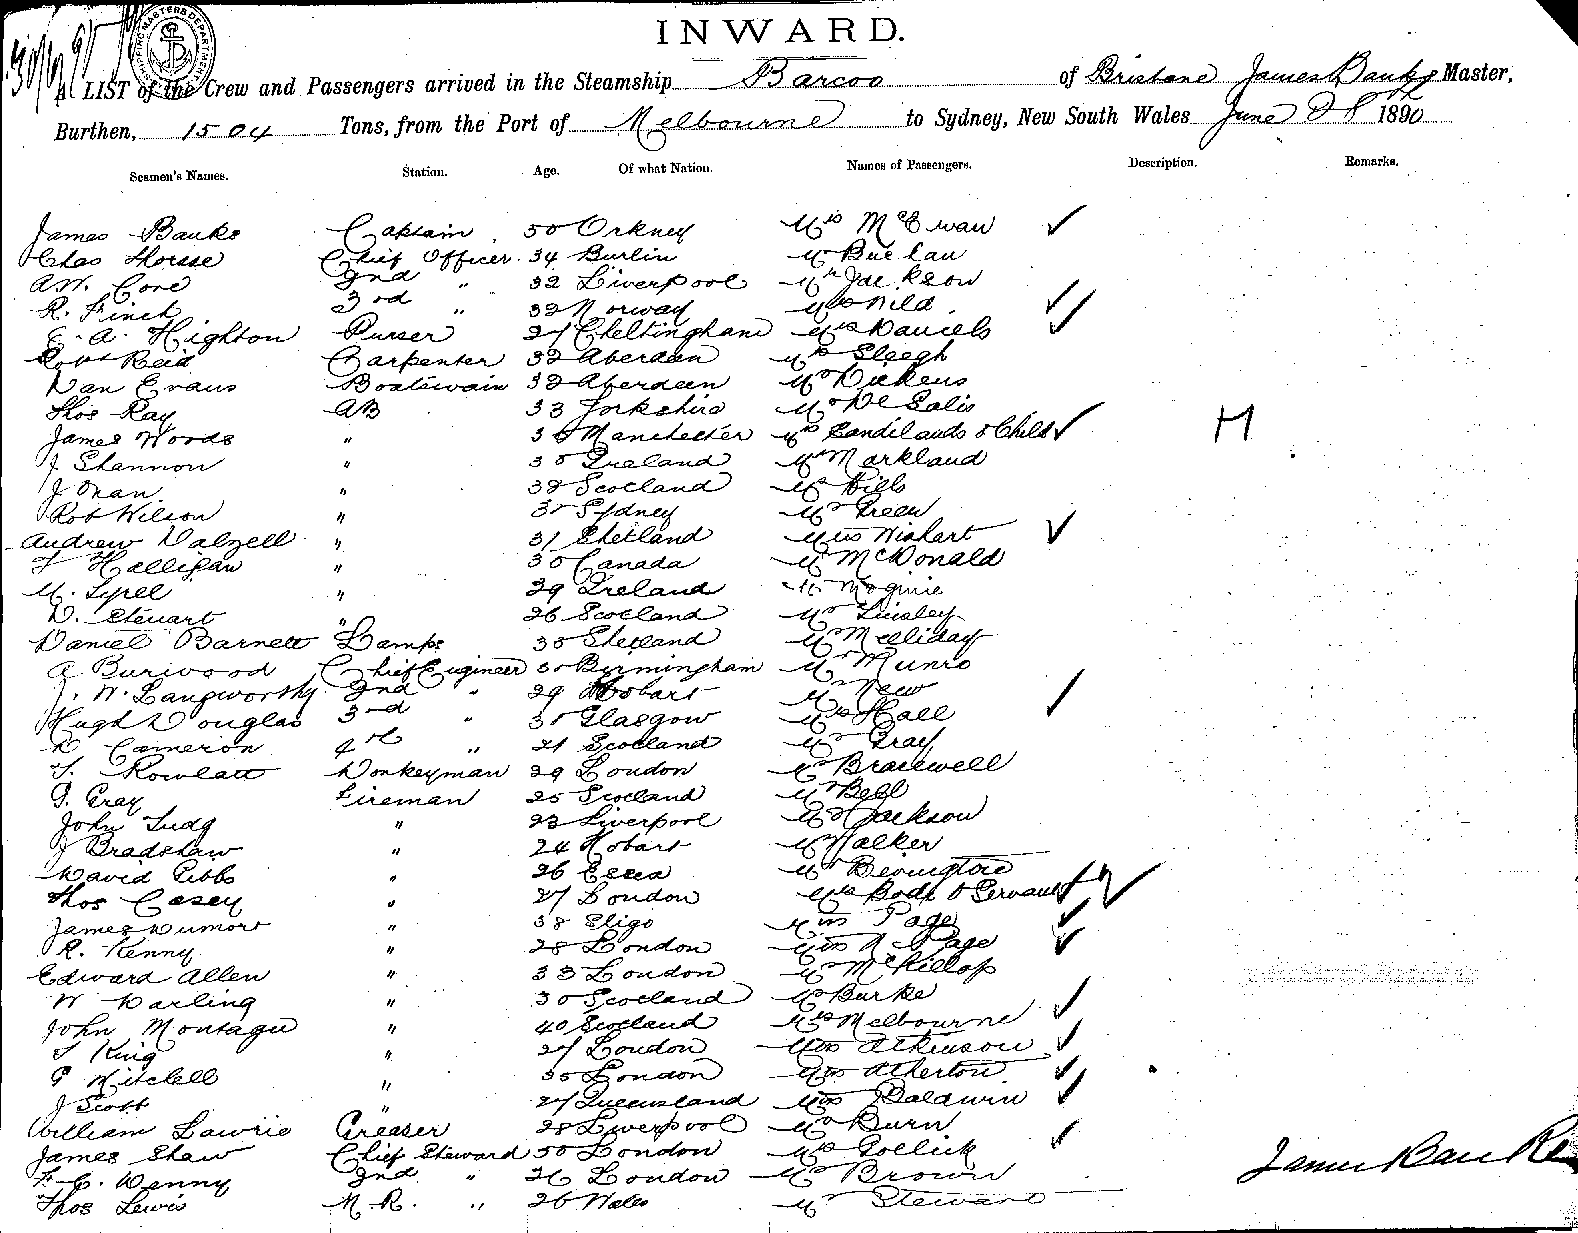 INWARD.
A LIST of the Crew and Passengers arrived in the Steamship Barcoo of Brisbane James Banks Master,
Burthen, 1504 Tons, from the Port of Melbourne to Sydney, New South Wales June 1890
Seamen's Names. Station. Age. Of what Nation. Names of Passengers. Description. Remarks.
James Banks Captain 50 Orkney Mrs McEwan
Chas Horsse Chief Officer 34 Burlin Mr Buchan
AW. Core 2nd " 32 Liverpool Mr Jackson
R. Finch 3rd " 32 Norway Mrs Nild
E. A. Highton Purser 27 Cheltingham Mrs Daniels
Robt Reid Carpenter 32 Aberdeen Mr Sleegh
Dan Evans Boatswain 32 Aberdeen Mr Dickens
Thos Ray AB 33 Yorkshire Mr De Salis
James Woods " Manchester Mrs Sandilands & Child H
J Shannon " Ireland Mr Markland
J Oran " 38 Scotland Mr Hills
Rob Wilson " Sydney Mr Green
Andrew Dalzell " 31 Shetland Miss Wishart
T Halligan " 30 Canada Mr McDonald
M. Lyell " 29 Ireland Mr Moginie
D. Stewart " 26 Scotland Mr Linsley
Daniel Barnett Lamps Shetland Mr Melliday
A Burwood Chief Engineer Birmingham Mr Munro
J. W. Langworthy 2nd " 29 Hobart Mr New
Hugh Douglas 3rd " Glasgow Mrs Hall
D Cameron 4th " 21 Scotland Mr Gray
T. Rowlatt Donkeyman 29 London Mr Bracewell
G. Gray Fireman 25 Scotland Mr Bell
John Judg " 23 Liverpool Mr Jackson
J Bradshaw " 24 Hobart Mr Walker
David Gibbs " 26 Essex Mr Bevington
Thos Casey " 27 London Mrs Body & Servant
James Dumort " 38 Sligo Miss Page
R. Kenny " 28 London Miss N Page
Edward Allen " 33 London Mr McKillop
W Darling " 30 Scotland Mr Burke
John Montagu " 40 Scotland Mrs Melbourne
T King " 27 London Miss Atkinson
G Mitchell " London Miss Atherton
J Scott " 27 Queensland Miss Baldwin
William Lawrie Greaser 28 Liverpool Mr Burn
James Shaw Chief Steward 50 London Mrs Gollick
F. C. Denny 2nd " 26 London Mr Brown
Thos Lewis M. R. " 26 Wales Mr Steward
James Banks